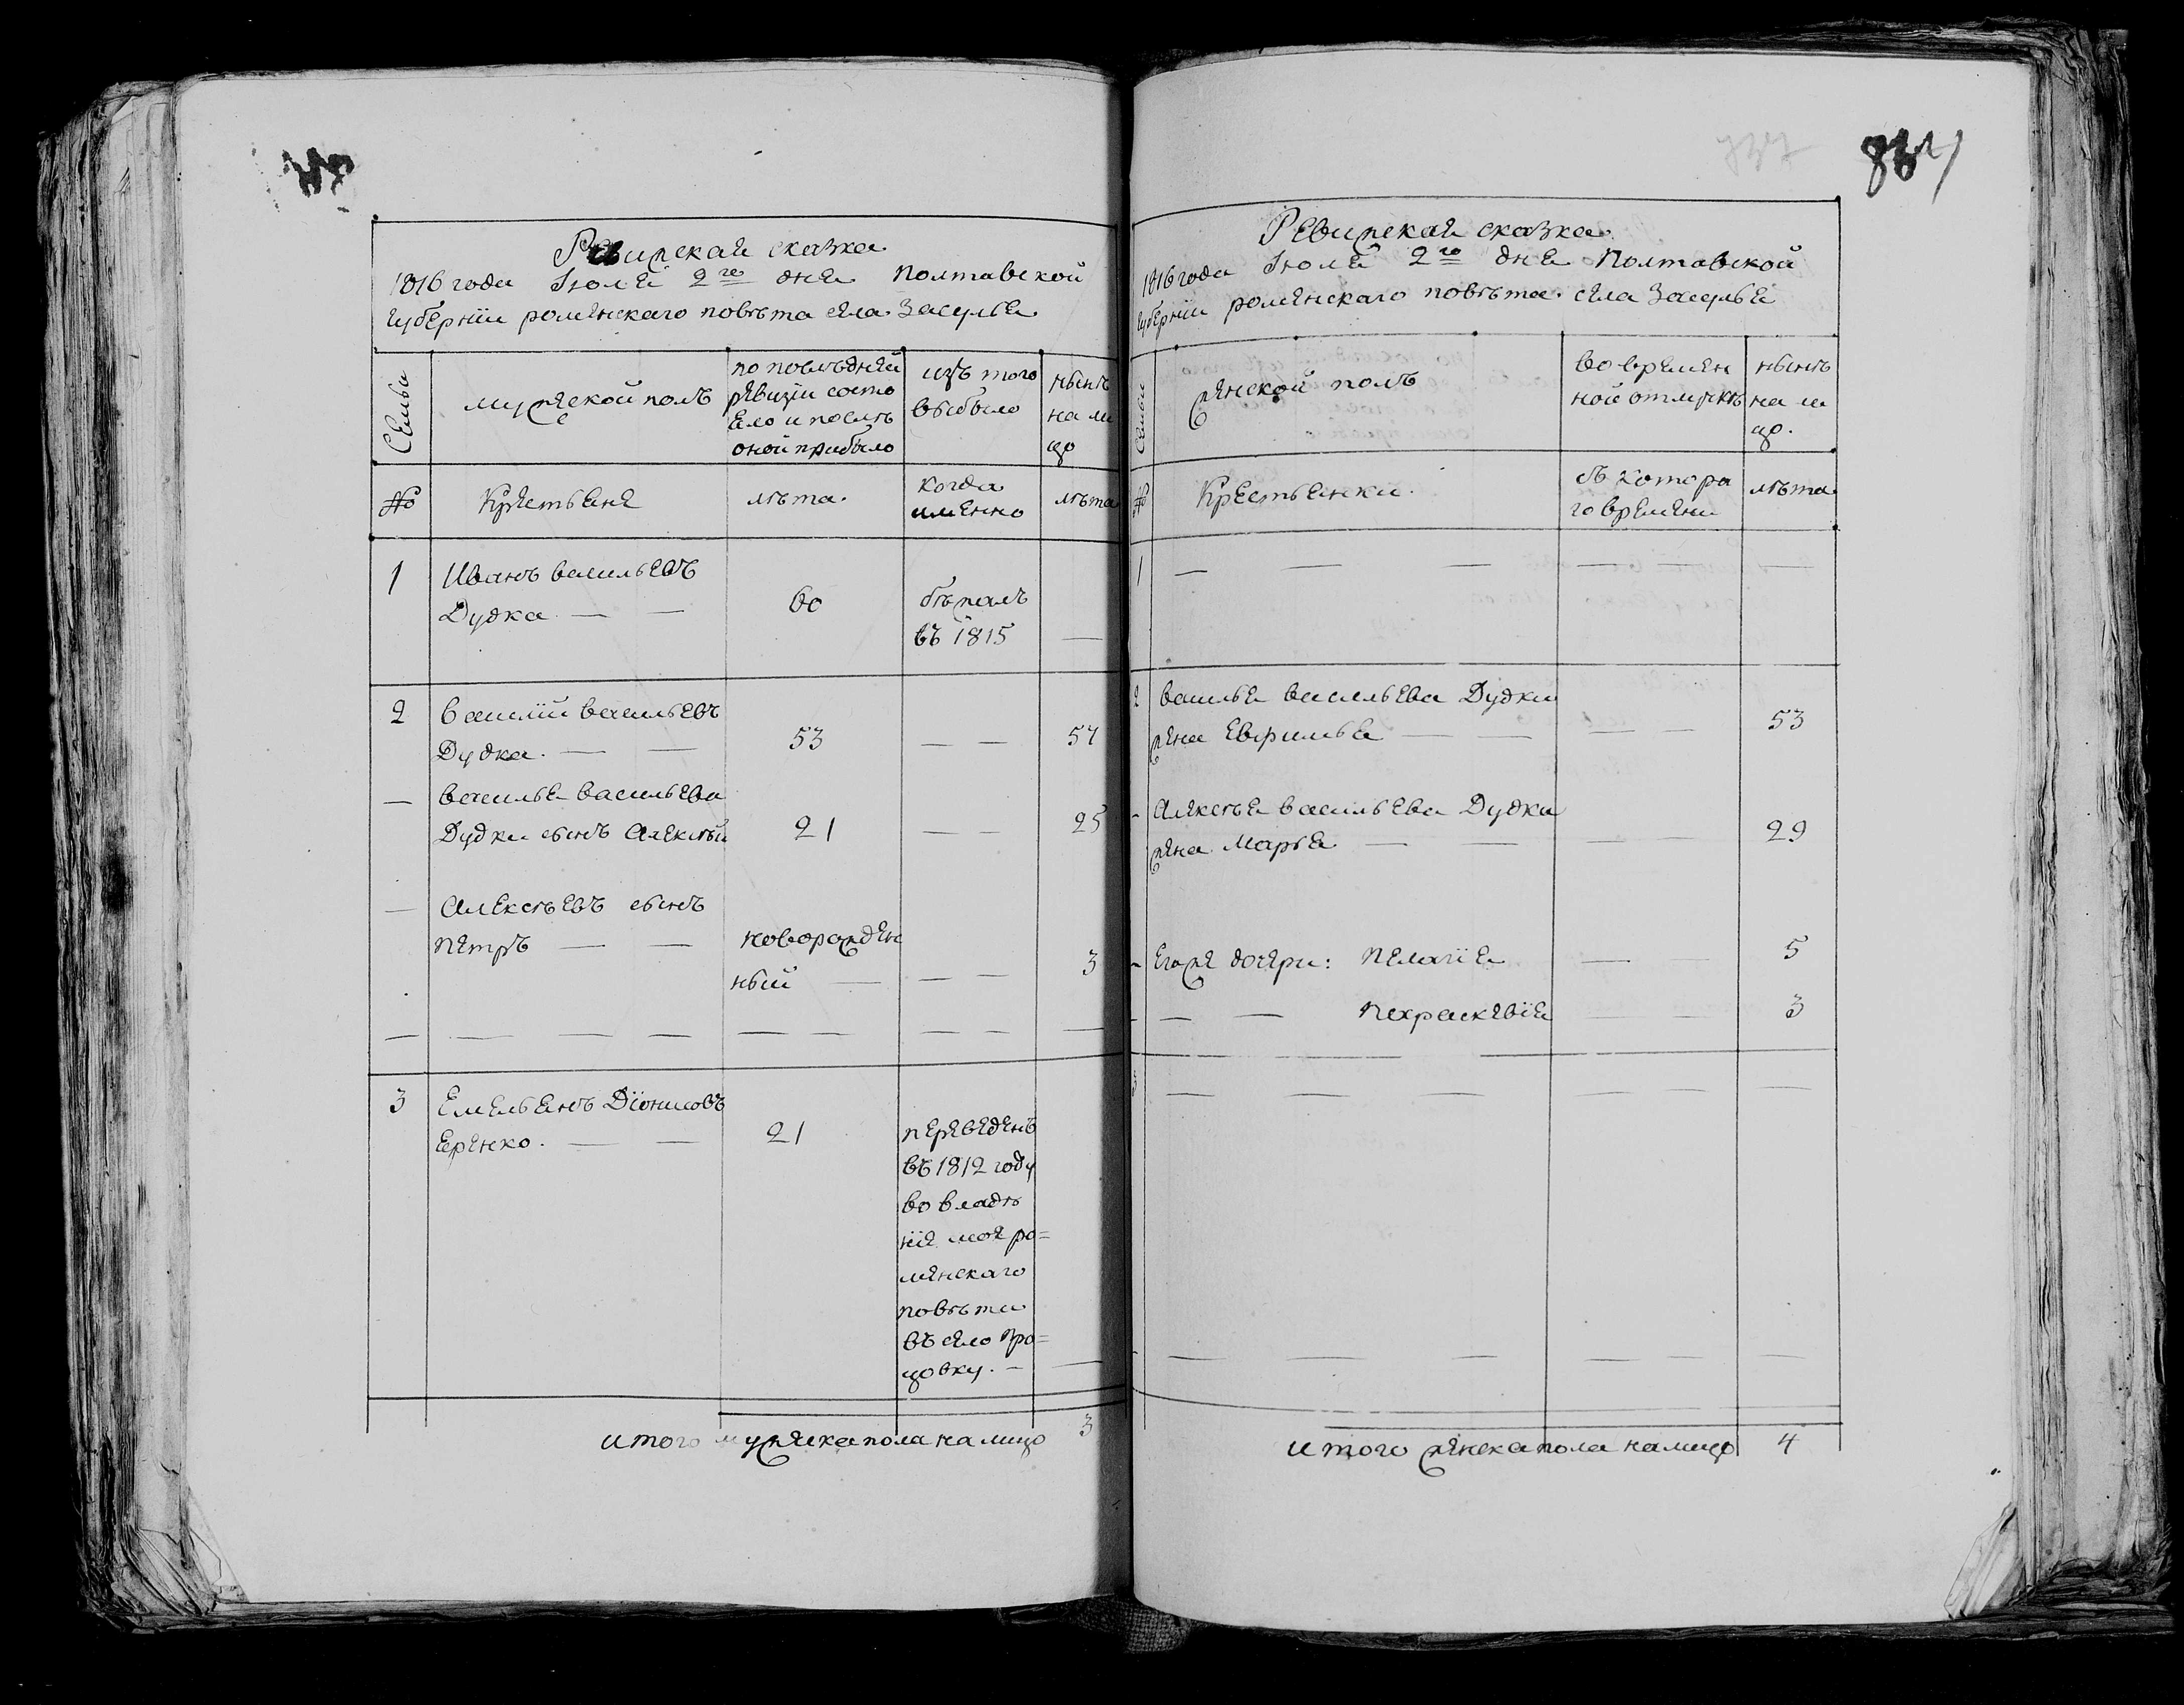 Ревижская сказка
1816 года Іюля 2го дня Полтавской
губерніи роменскаго повѣта села Засулья
Семьи
мужеской полъ
по послѣдней
ревизіи состо
яло и послѣ
оной прибыло
изъ того
выбыло
нынѣ
на ли
цо
№
Крестьяне
лѣта
когда
именно
лѣта
1
Иванъ васильевъ
Дудка
60
бѣжалъ
въ 1815
2
василій васильевъ
Дудка
53
57
василья васильева
Дудки сынъ Алексѣй
21
25
Алексѣевъ сынъ
петръ
новорожден
ный
3
3
Емельянъ Діонисовъ
21
переведенъ
въ 1812 году
во владѣ
ніе мое ро=
менскаго
повѣта
въ село
цовку.
итого мужеска пола на лицо 3
737
Ревижская сказка
1816 года Іюля 2го дня Полтавской
губерніи роменскаго повѣта села Засулья
Семьи
женской полъ
во времян
ной отлучкѣ
нынѣ
на ли
цо.
№
Крестьянки
съ котора
го времени
лѣта
1
2
василья васильева Дудки
жена Евфимья
53
Алексѣя васильева Дудки
жена Марья
29
Его же дочери: пелагія
5
параскевія
3
3
итого женска пола на лицо 4